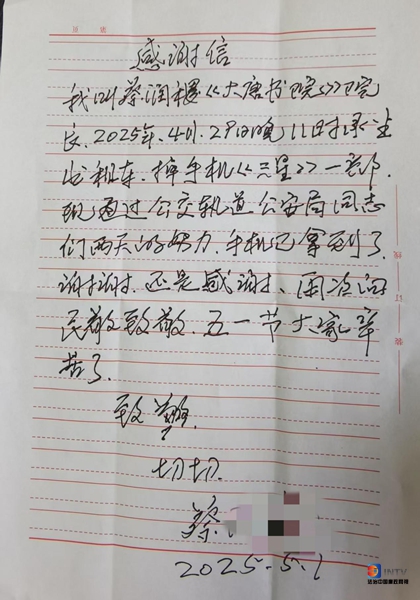 感谢信
我叫蔡润《大唐书院》院
长.2025年.4月.29日晚11时乘坐
出租车.掉手机《三星》一部.
现通过公交轨道公安局同志
们两天的努力.手机已拿到了.
谢谢.还是感谢、次向
民警致敬.五一节大家辛
苦了.
致敬.
切切.
蔡
2025.5.1